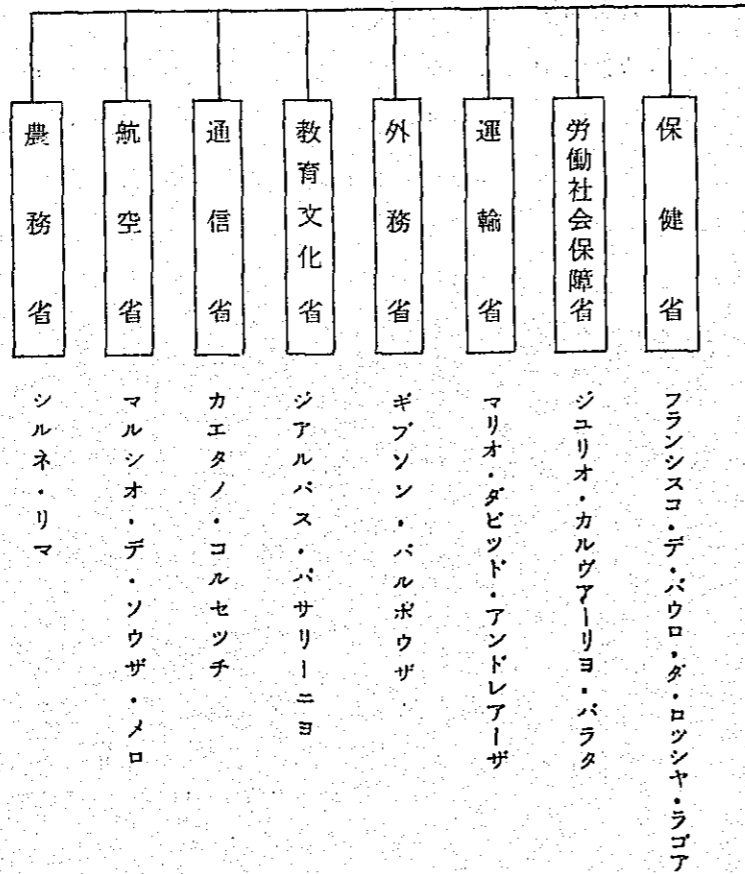 保健省
フランシスコ・デ・パウロ・ダ・ロッシャ・ラゴア
労働社会保障省
ジュリオ・カルヴァーリョ・バラタ
運輸省
マリオ・ダビッド・アンドレアーザ
外務省
ギブソン・バルボウザ
教育文化省
ジアルバス・パサリーニョ
通信省
カエタノ・コルセッチ
航空省
マルシオ・デ・ソウザ・メロ
農務省
シルネ・リマ